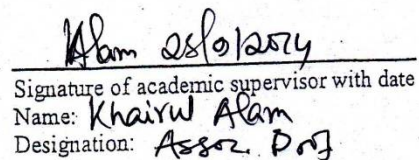 Alam 28/9/2014
Signature of academic supervisor with date
Name: Khairul Alam
Designation: Assoc. Prof